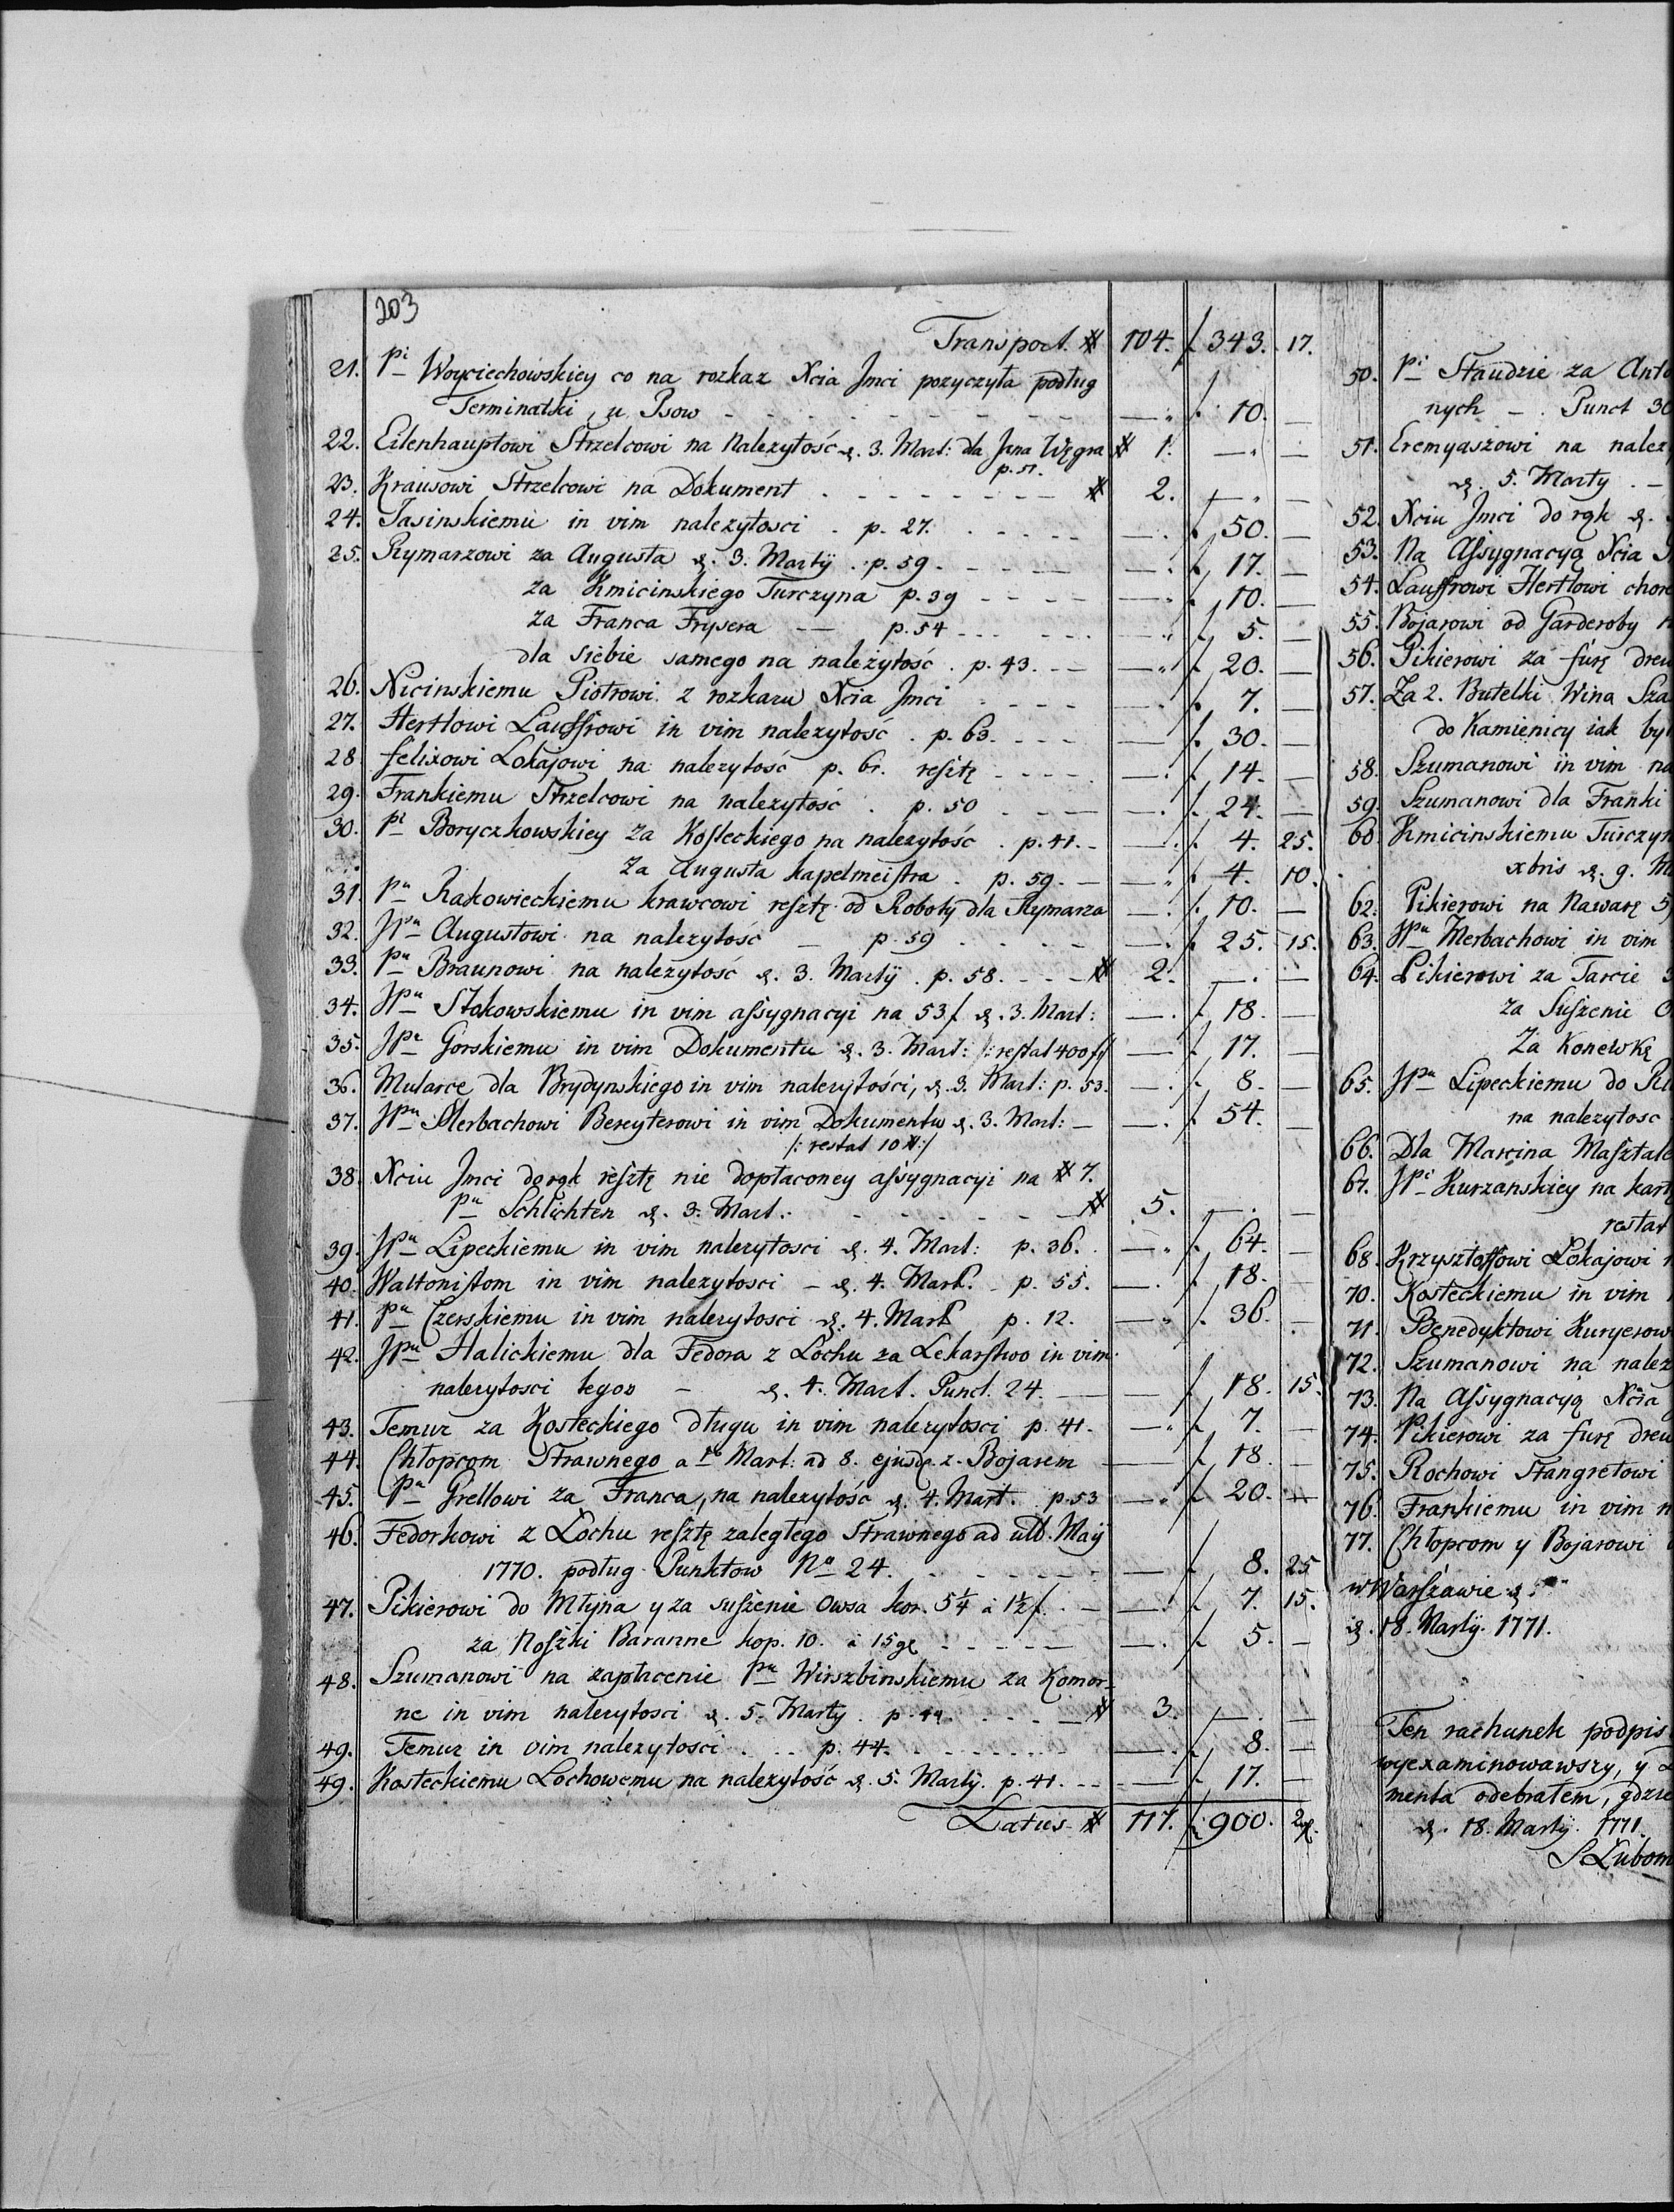 203
Transport. # 104. f 343. 17.
21. Pi Woyciechowskiey co na rozkaz Xcia Jmci pozyczyła podług
Terminatki, u Psow - - - - f. 10. —
22. Eilenhauptowi Strzelcowi na Nalezytość d. 3. Mart: dla Jana Węgra # 1. — —
p. 51.
23. Krausowi Strzelcowi na Dokument - - - # 2. — —
24. Jasinskiemu in vim nalezytosci . p. 27. - - - f. 50. —
25. Rymarzowi za Augusta d. 3. Martÿ . p. 59. - - - f. 17. —
za Kmicinskiego Turczyna p. 39 - - - f. 10. —
za Franca Frysera — p. 54 - - - f. 5. —
dla siebie samego na należytość . p. 43. - - f. 20. —
26. Nicinskiemu Piotrowi z rozkazu Xcia Jmci - - - f. 7. —
27. Hertlowi Lauffrowi in vim nalezytość . p. 63. - - - f. 30. —
28 felixowi Lokajowi na nalezytość p. 61. resztę - - - f. 14. —
29. Frankiemu Strzelcowi na nalezytość . p. 50 - - - f. 24. —
30. Pi Boryczkowskiey za Kosteckiego na nalezytość . p. 41. - f. 4. 25.
Za Augusta kapelmeistra . p. 59. — f. 4. 10.
31. Pu Rakowieckiemu krawcowi resztę od Roboty dla Rymarza — f. 10. —
32. JPu Augustowi na nalezytość — p. 59 - - - f. 25. 15.
33. Pu Braunowi na nalezytość d. 3. Martÿ . p. 58. - - - # 2. — —
34. JPu Stokowskiemu in vim assygnacyi na 53 f. d. 3. Mart: — f. 18. —
35. JPu Gorskiemu in vim Dokumentu d. 3. Mart: /: restat 400 f :/ — f. 17. —
36. Mularce dla Brydynskiego in vim nalezytości, d. 3. Mart: p. 53. — f. 8. —
37. JPu Merbachowi Bereyterowi in vim Dokumentu d. 3. Mart: — f. 54. —
/: restat 10 #:/
38. Xciu Jmci do rąk resztę nie dopłaconey assygnacyi na # 7.
Pu Schlichten d. 3. Mart. - - - # 5. — —
39. JPu Lipeckiemu in vim nalezytosci d. 4. Mart: p. 36. — f. 64. —
40. Waltonistom in vim nalezytosci — d. 4. Mart. p. 55. — f. 18. —
41. Pu Czerskiemu in vim nalezytosci d. 4. Mart p. 12. — f. 36. —
42. JPu Halickiemu dla Fedora z Lochu za Lekarstwo in vim
nalezytosci tegoz — d. 4. Mart. Punct. 24. — f. 18. 15.
43. Temur za Kosteckiego długu in vim nalezytosci p. 41. — f. 7. —
44. Chłopcom Strawnego a 1mo Mart: ad 8. ejusd. z Bojarem — f. 18. —
45. Pu Grellowi za Franca, na nalezytość d. 4. Mart. p. 53 — f. 20. —
46. Fedorkowi z Lochu resztę zaległego Strawnego ad ult. Maÿ
1770. podług Punktow No 24. - - - f. 8. 25
47. Pikierowi do Młyna y za suszenie Owsa kor. 5 1/4 à 1 1/2 f. — f. 7. 15.
za Noszki Baranne kop. 10. à 15 gl - - - f. 5. —
48. Szumanowi na zapłacenie Pu Wirszbinskiemu za Komor-
ne in vim nalezytosci d. 5. Marty . p. 44. - - - # 3. — —
49. Temur in vim nalezytosci . . p. 44. - - - f. 8. —
49. Kosteckiemu Lochowemu na nalezytość d. 5. Martÿ. p. 41. - - f. 17. —
Latus # 117. f. 900. 2 gl.
50. Pi Staudzie za Anto
nych — . Punct 30
51. Eremyaszowi na nalez
d. 5. Marty . —
52. Xciu Jmci do rąk d.
53. Na Assygnacyą Xcia
54. Lauffrowi Hertlowi chore
55. Bojarowi od Garderoby
56. Pikierowi za furę drew
57. Za 2. Butelki Wina Sza
do Kamienicy iak by
58. Szumanowi in vim na
59. Szumanowi dla Franki
60 Kmicinskiemu Turczyn
xbris d. 9. M
62. Pikierowi na Nawarę 5
63. JPu Merbachowi in vim
64. Pikierowi za Tarcie 3
za Suszenie O
Za Konewkę
65. JPu Lipeckiemu do Ru
na nalezytosc
66. Dla Marcina Masztale
67. JPi Kurzanskiey na kart
restat
68. Krzysztoffowi Lokajowi
70. Kosteckiemu in vim
71. Benedyktowi Kuryerow
72. Szumanowi na nalez
73. Na Assygnacyą Xcia
74. Pikierowi za furę drew
75. Rochowi Stangretowi
76. Frankiemu in vim n
77. Chłopcom y Bojarowi
w Warszawie d.
d. 18. Martÿ. 1771.
Ten rachunek podpis
wyexaminowawszy, y
menta odebrałem, gdzie
d. 18. Martÿ. 1771.
S Lubom